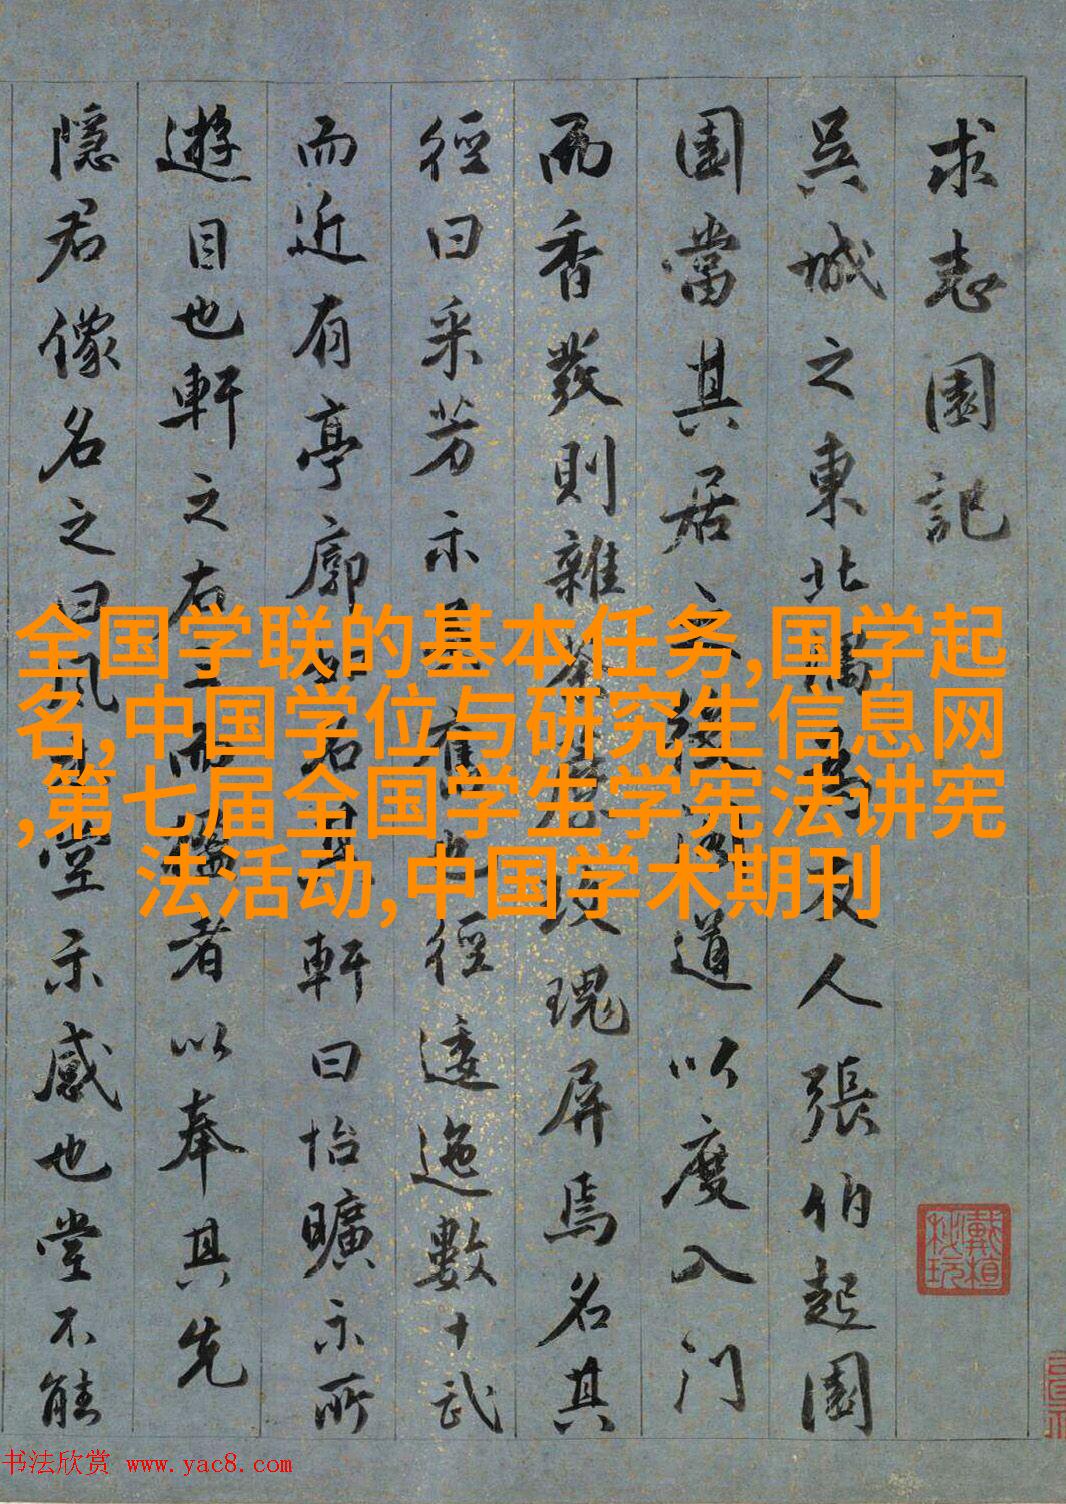 求志園記
吳城之東北隅為友人張伯起園
園當其居之後道以度入門
而香發則雜玫瑰屏焉名其
徑曰采芳示有也徑逶迤數十武
而近有亭廓如名其軒曰怡曠示所
遊目也軒之右而楹者以奉其先
隱君像名之曰風堂示感也堂不能
全国学联的基本任务,国学起
名,中国学位与研究生信息网
,第七届全国学生学宪法讲宪
法活动,中国学术期刊
戴植秘玩
书法欣赏 www.yac8.com